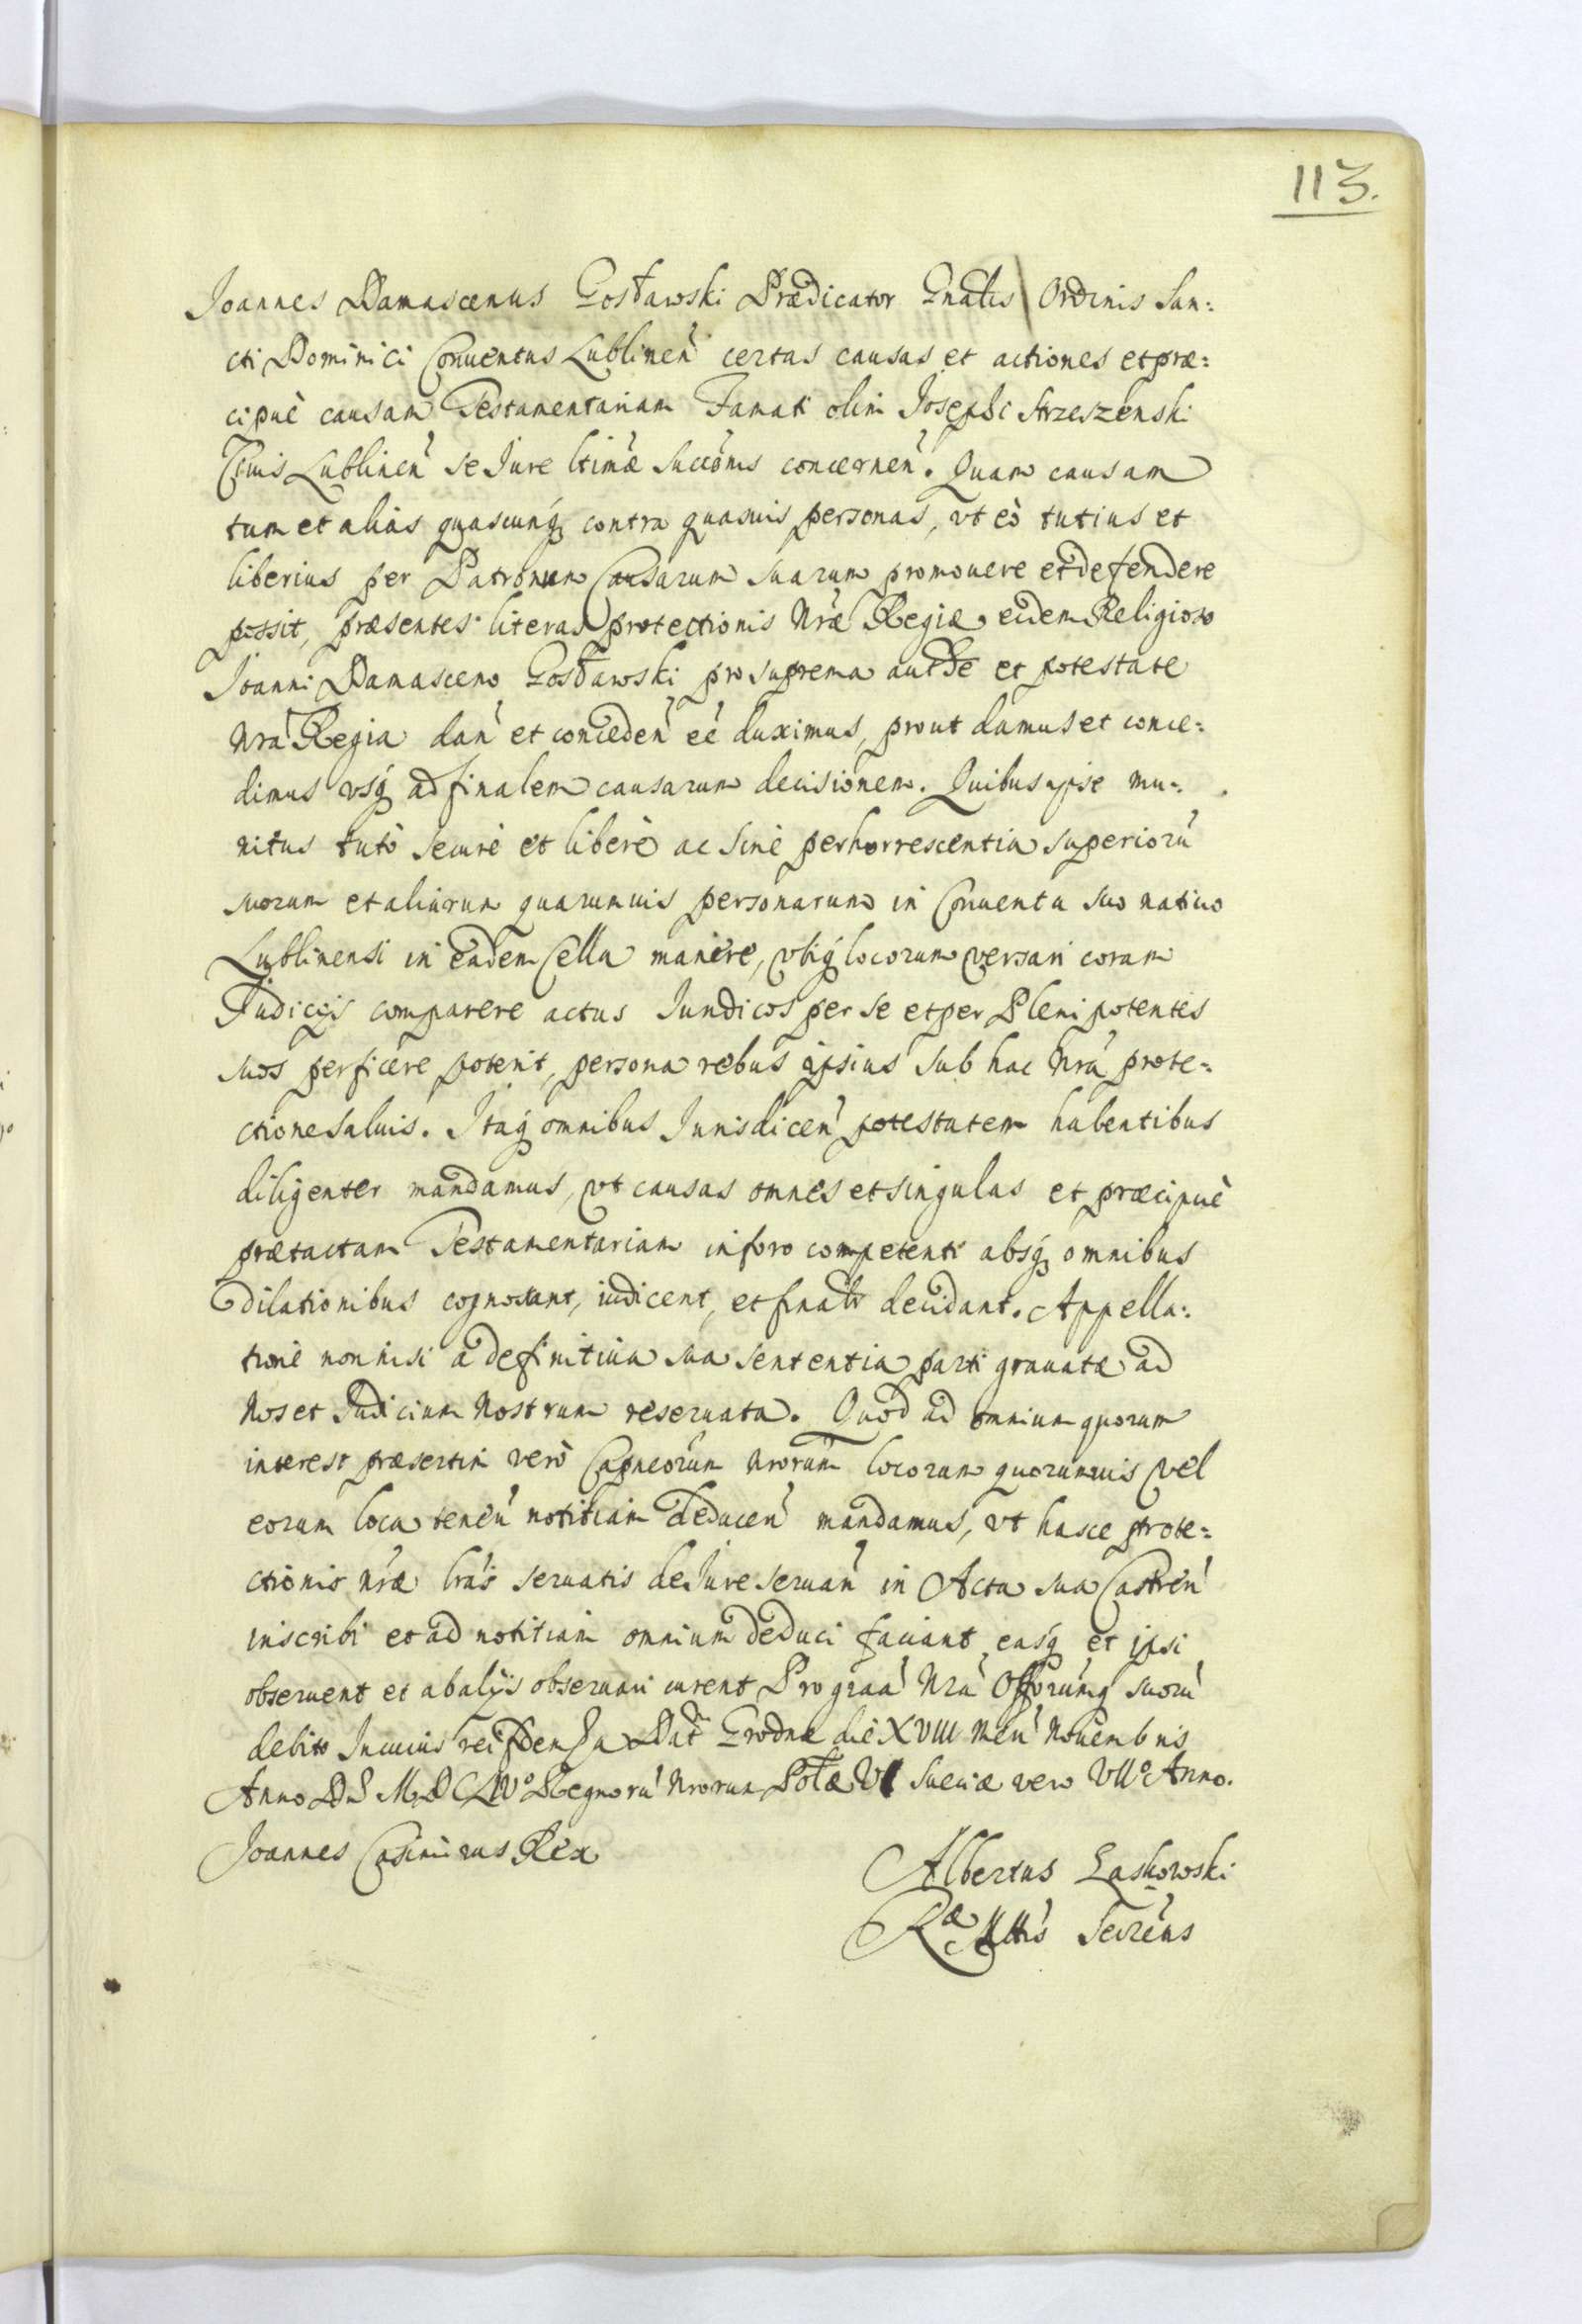 113.
Joannes Damascenus Gosławski Prædicator Gnalis Ordinis San:
cti Dominici Conuentus Lublinen̄ certas causas et actiones et præ:
cipuè causam Testamentariam Famati olim Josephi Strzeszenski
Ciuis Lublinen̄ se Jure ltimæ succōnis concernen̄. Quam causam
tum et alias quascunq́ contra quasuis personas, vt eò tutius et
liberius per Patronum Causarum suarum promouere et defendere
possit, præsentes literas protectionis Nræ Regiæ eidem Religioso
Joanni Damasceno Gosławski pro suprema autħe et potestate
Nrā Regia dan̄ et conceden̄ eē duximus, prout damus et conce:
dimus vsq́ ad finalem causarum decisionem. Quibus ipse mu:
nitus tutò securè et liberè ac sinè perhorrescentia superiorū
suorum et aliarum quarumuis personarum in Conuentu suo natiuo
Lublinensi in eadem Cella manere, vbiq́ locorum versari coram
Judicijs comparere actus Juridicos per se et per Plenipotentes
suos perficere poterit, persona rebus ipsius sub hac Nrā prote:
ctione saluis. Itaq́ omnibus Jurisdicen̄ potestatem habentibus
diligenter mandamus, vt causas omnes et singulas et præcipuè
prætactam Testamentariam in foro competenti absq́ omnibus
dilationibus cognoscant, iudicent, et finalr decidant. Appella:
tione non nisi a definitiua sua sententia parti grauatæ ad
Nos et Judicium Nostrum reseruata. Quod ad omnium quorum
interest præsertim verò Capneorum Nrorum locorum quorumuis vel
eorum loca tenen̄ notitiam deducen̄ mandamus, vt hasce prote:
ctionis nræ lrās seruatis de Jure seruan̄ in Acta sua Castren̄
inscribi et ad notitiam omnium deduci faciant, easq́ et ipsi
obseruent et ab alijs obseruari curent Pro graā Nrā Offorumq́ suorū
debito In cuius rei fidem Dat Grodnæ die XVIII Men̄ Nouembris
Anno D M.DCLIVo Regnorū Nrorum Polæ VI Sueciæ vero VIIo Anno.
Joannes Casimirus Rex
Albertus Laskowski
Ræ Mttis Secrēus